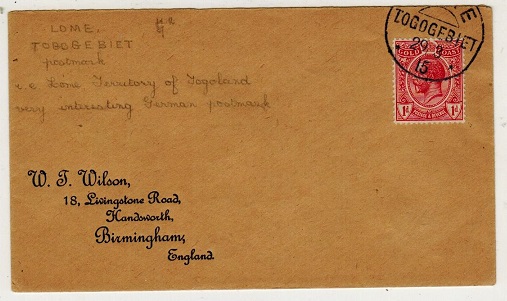 LOME,
TOGOGEBIET
postmark
i.e Lome Territory of Togoland
very interesting German postmark
E
TOGOGEBIET
29
15
GOLD COAST
POSTAGE & REVENUE
1d 1d
W. T. Wilson,
18, Livingstone Road,
Handsworth,
Birmingham,
England.